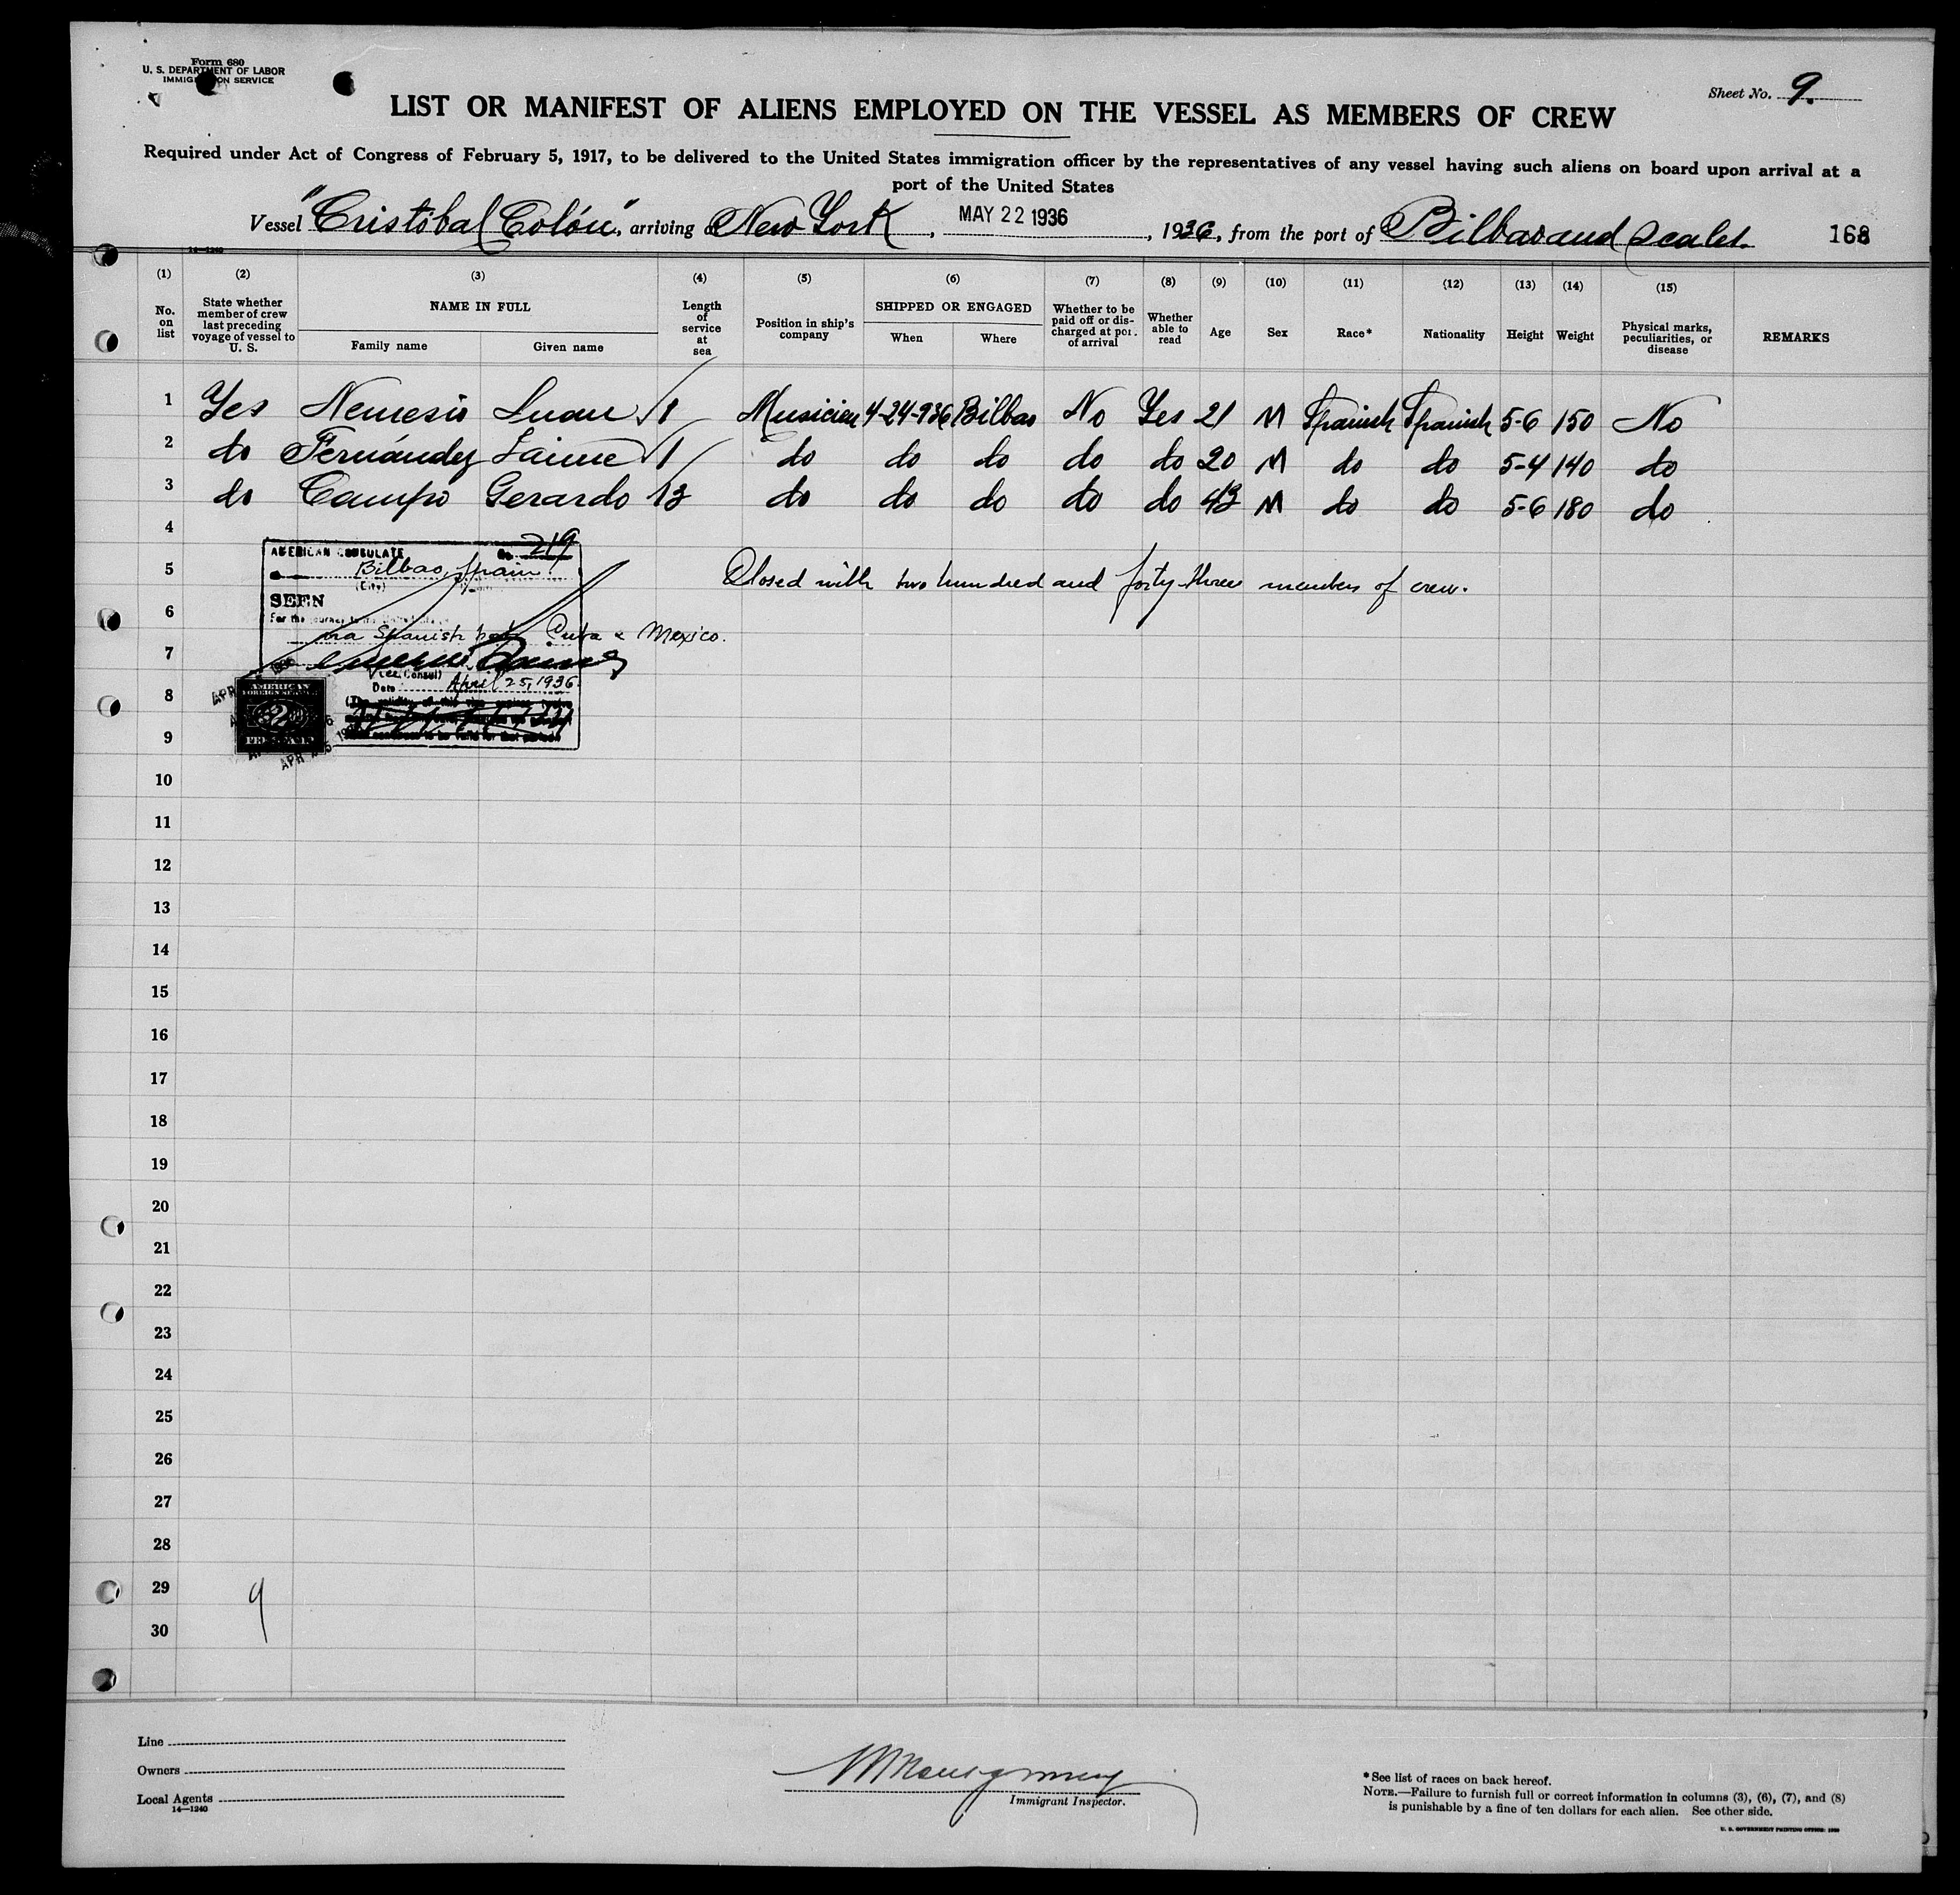 Form 680
U. S. DEPARTMENT OF LABOR
IMMIGRATION SERVICE
Sheet No. 9.
LIST OR MANIFEST OF ALIENS EMPLOYED ON THE VESSEL AS MEMBERS OF CREW
Required under Act of Congress of February 5, 1917, to be delivered to the United States immigration officer by the representatives of any vessel having such aliens on board upon arrival at a
port of the United States
Vessel "Cristóbal Colón", arriving at New York, MAY 22 1936, 1936, from the port of Bilbao and scales. 168
14-1240
(1) (2) (3) (4) (5) (6) (7) (8) (9) (10) (11) (12) (13) (14) (15)
No. on list
State whether member of crew last preceding voyage of vessel to U. S.
NAME IN FULL
Family name
Given name
Length of service at sea
Position in ship's company
SHIPPED OR ENGAGED
When
Where
Whether to be paid off or discharged at port of arrival
Whether able to read
Age
Sex
Race*
Nationality
Height
Weight
Physical marks, peculiarities, or disease
REMARKS
1 Yes Nemesio Juan 1 Musician 4-24-936 Bilbao No Yes 21 M Spanish Spanish 5-6 150 No
2 do Fernández Jaime 1 do do do do do 20 M do do 5-4 140 do
3 do Campo Gerardo 13 do do do do do 43 M do do 5-6 180 do
4
AMERICAN CONSULATE No. 219
5 Bilbao, Spain Closed with two hundred and forty three members of crew.
(City)
SEEN
6
For the journey to the United States
via Spanish ports Cuba & Mexico.
7
Vice Consul
Date April 25, 1936
8
AMERICAN
FOREIGN SERVICE
2
9
APR 25 1936
10
11
12
13
14
15
16
17
18
19
20
21
22
23
24
25
26
27
28
29
9
30
Line
Owners
Local Agents
14—1240
Immigrant Inspector.
*See list of races on back hereof.
NOTE.—Failure to furnish full or correct information in columns (3), (6), (7), and (8)
is punishable by a fine of ten dollars for each alien. See other side.
U. S. GOVERNMENT PRINTING OFFICE: